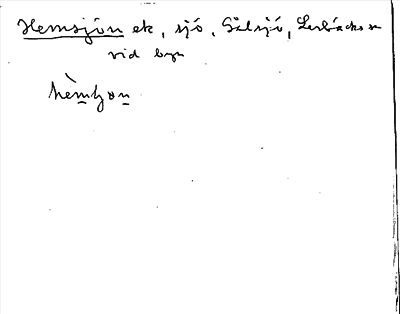 Hemsjön ek, sjö, Gålsjö, Lerbäcks sn
vid byn
hèmʃɷn